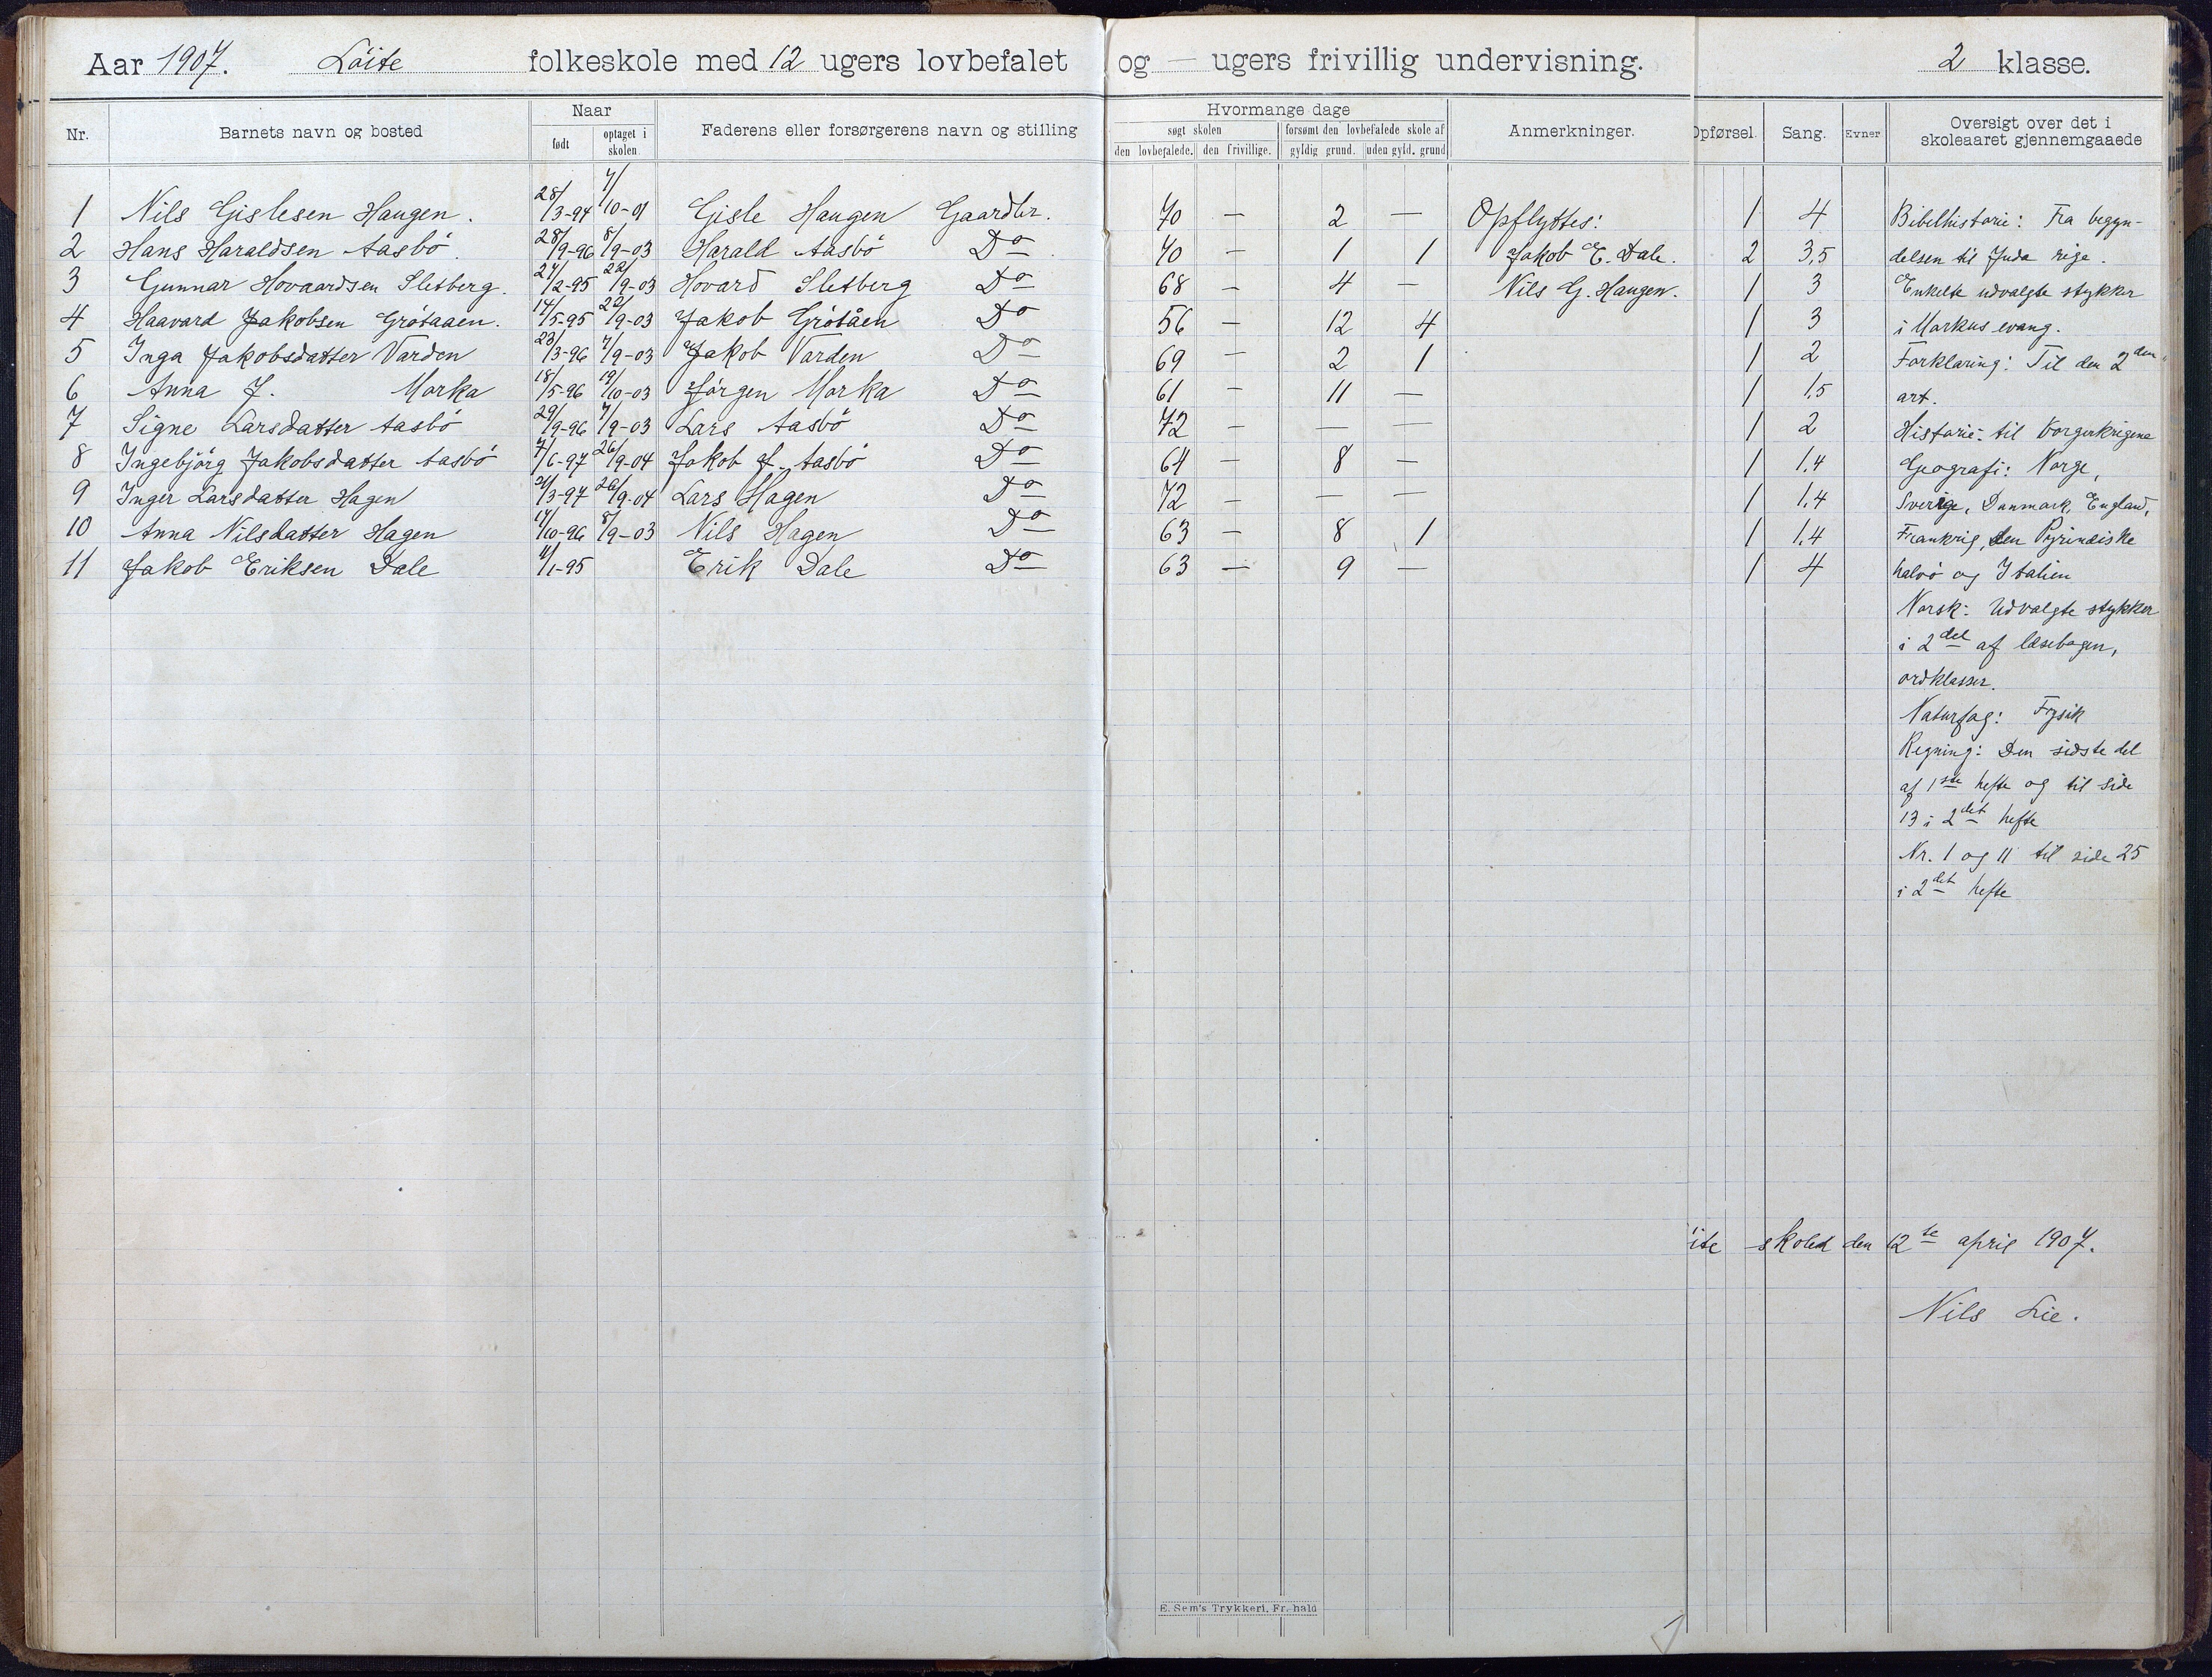 Aar 1907. Löite folkeskole med 12 ugers lovbefalet og — ugers frivillig undervisning. 2 klasse.
Nr. Barnets navn og bosted Naar født optaget i skolen. Faderens eller forsørgerens navn og stilling Hvormange dage søgt skolen den lovbefalede. den frivillige. forsømt den lovbefalede skole af gyldig grund. uden gyld. grund Anmerkninger. Opførsel. Sang. Evner Oversigt over det i skoleaaret gjennemgaaede
1 Nils Gislesen Haugen. 28/3-94 7/10-01 Gisle Haugen Gaardbr. 70 — 2 — Opflyttes: 1 4 Bibelhistorie: Fra begyn-
2 Hans Haraldsen Aasbö. 28/9-96 8/9-03 Harald Aasbö Do 70 — 1 1 Jakob E. Dale. 2 3,5 delsen til Juda rige.
3 Gunnar Hovaardsen Sletberg. 27/2-95 22/9-03 Hovard Sletberg Do 68 — 4 — Nils G. Haugen. 1 3 Enkelte udvalgte stykker
4 Haavard Jakobsen Grötaaen. 14/5-95 22/9-03 Jakob Grötåen Do 56 — 12 4 1 3 i Markus evang.
5 Inga Jakobsdatter Varden 23/3-96 7/9-03 Jakob Varden Do 69 — 2 1 1 2 Forklaring: Til den 2den
6 Anna J. Morka 18/5-96 19/10-03 Jörgen Morka Do 61 — 11 — 1 1,5 art.
7 Signe Larsdatter Aasbö 29/9-96 7/9-03 Lars Aasbö Do 72 — — — 1 2 Historie: til borgerkrigene
8 Ingebjörg Jakobsdatter Aasbö 7/6-97 26/9-04 Jakob J. Aasbö Do 64 — 8 — 1 1,4 Geografi: Norge,
9 Inger Larsdatter Hagen 21/3-97 26/9-04 Lars Hagen Do 72 — — — 1 1,4 Sverige, Danmark, England,
10 Anna Nilsdatter Hagen 17/10-96 8/9-03 Nils Hagen Do 63 — 8 1 1 1,4 Frankrig, den Pyrinæiske
11 Jakob Eriksen Dale 4/1-95 Erik Dale Do 63 — 9 — 1 4 halvö og Italien
Norsk: Udvalgte stykker
i 2del af læsebogen,
ordklasser.
Naturfag: Fysik
Regning: Den sidste del
af 1ste hefte og til side
13 i 2det hefte
Nr. 1 og 11 til side 25
i 2det hefte
ite skoled den 12te april 1907.
Nils Lie.
E. Sem's Trykkeri, Fr.hald